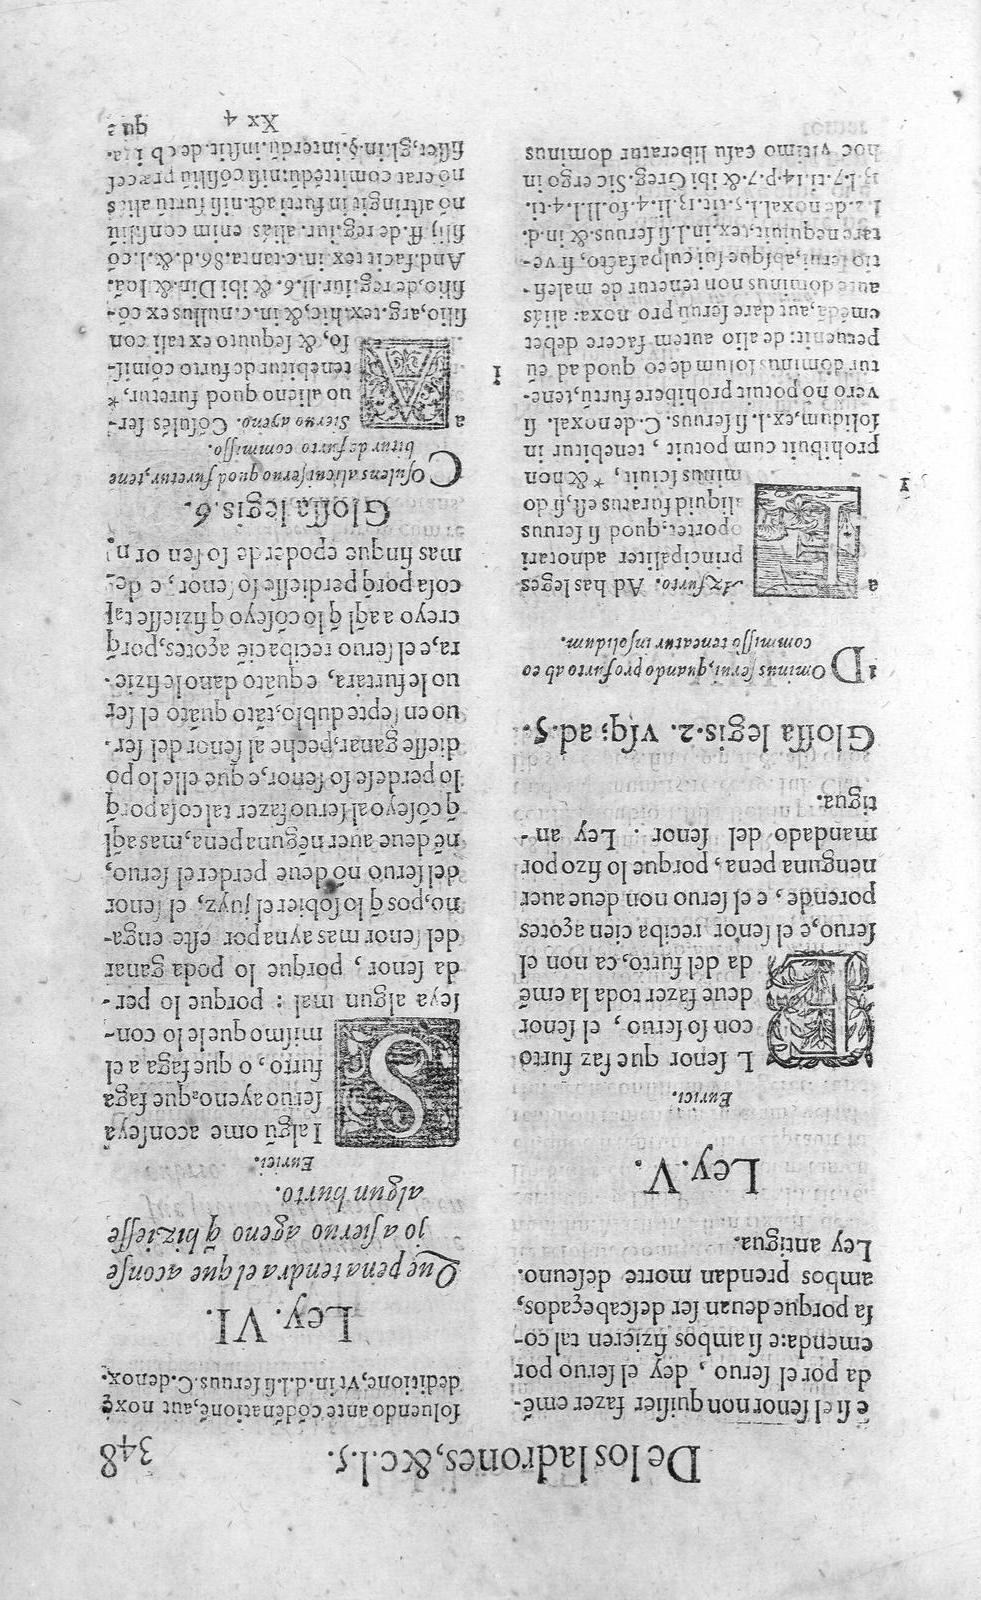 De los ladrones, &c.l.5. 348
e ſi el ſenor non quiſier fazer emē-
da por el ſeruo, dey el ſeruo por
emenda: e ſi ambos fizieren tal co-
ſa porque deuan ſer deſcabeçados,
ambos prendan morte deſeuno.
Ley antigua.
Ley. V.
Eurici.
EL ſenor que faz furto
con ſo ſeruo, el ſenor
deue fazer toda la emē
da del furto, ca non el
ſeruo, e el ſenor reciba cien açotes
porende, e el ſeruo non deue auer
nenguna pena, porque lo fizo por
mandado del ſenor. Ley an-
tigua.
Gloſſa legis.2. vſq; ad.5.
1 Dominus ſerui, quando pro furto ab eo
commiſſo teneatur in ſolidum.
a Az furto. Ad has leges
principaliter adnotari
oportet, quod ſi ſeruus
aliquid furatus eſt, ſi do
1 minus ſciuit, * & non
prohibuit cum potuit, tenebitur in
ſolidum, ex.l. ſi ſeruus. C. de noxal. ſi
vero no potuit prohibere furtū, tene-
tur dominus ſolum de eo quod ad eū
peruenit: de alio autem facere debet
emēdā, aut dare ſeruū pro noxa: aliàs
autē dominus non tenetur de malefi-
tio ſerui, abſque ſui culpa facto, ſi ve-
tare nequiuit, tex. in.l. ſi ſeruus. & in.d.
l.2. de noxal.l.5. tit.13.li.4. fo.ll.l.4.ti.
13.l.7.ti.14.p.7. & ibi Greg. Sic ergo in
hoc vltimo caſu liberatur dominus
ſoluendo ante cōdēnationē, aut noxę
deditione, vt in.d.l. ſi ſeruus. C. de nox.
Ley. VI.
Que pena tendra el que aconſe
jo a ſieruo ageno q̄ hizieſſe
algun hurto.
Eurici.
SI algū ome aconſeya
ſeruo ayeno, que faga
furto, o que faga a el
miſmo que le lo con-
ſeya algun mal: porque lo per-
da ſenor, porque lo poda ganar
del ſenor mas ayna por eſte enga-
no, pos q̄ lo ſobier el juyz, el ſenor
del ſeruo nō deue perder el ſeruo,
nē deue auer nēguna pena, mas aq̄l
q̄ cōſeyo al ſeruo fazer tal coſa porq̄
lo perdeſe ſo ſenor, e que elle lo po
dieſſe ganar, peche al ſenor del ſer-
uo en ſepte dublo, tāto quāto el ſer
uo le furtara, e quāto dano le fizie-
ra, e el ſeruo recibaciē açotes, porq̄
creyo a aq̄l q̄ lo cōſeyo q̄ fizieſſe tal
coſa porq̄ perdieſſe ſo ſenor, e de-
mas finque ē poder de ſo ſenor.
Gloſſa legis.6.
Cōſulens alieni ſeruo quod furetur, tene
bitur de furto commiſſo.
a Sieruo ageno. Cōſulēs ſer-
uo alieno quod furetur, *
1 tenebitur de furto cōmiſ-
ſo, & ſequuto ex tali con
ſilio, arg. tex. hic, & in.c. nullus ex cō-
ſilio. de reg. iur. li.6. & ibi Din. & Ioā.
And. facit tex. in.c. tanta. 86.d. & .l. cō
ſilij. ff. de reg. iur. aliàs enim conſiliū
nō aſtringit in furti act. niſi furtū aliàs
nō erat commitēdū, niſi cōſiliū præceſ
ſiſſet, gl. in. §. interdū. inſtit. de
Xx 4